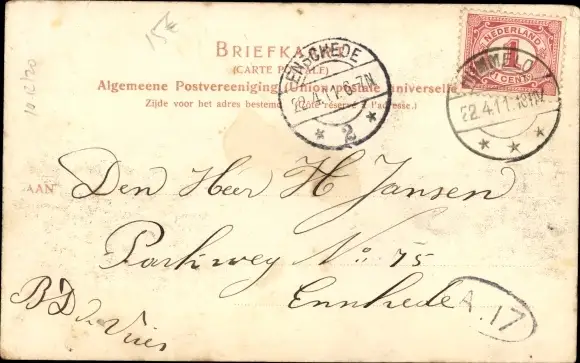 15c
10/12/20
BRIEFKAART
(CARTE POSTALE)
Algemeene Postvereeniging (Union postale universelle)
Zijde voor het adres bestemd (Côté réservé à l'adresse.)
ENSCHEDE
22.4.11. 6-7N
2
NEDERLAND
1
CENT
22.4.11
AAN
Den Heer H Jansen
Parkweg No 75
Ennhede
BD de Vries
A.17